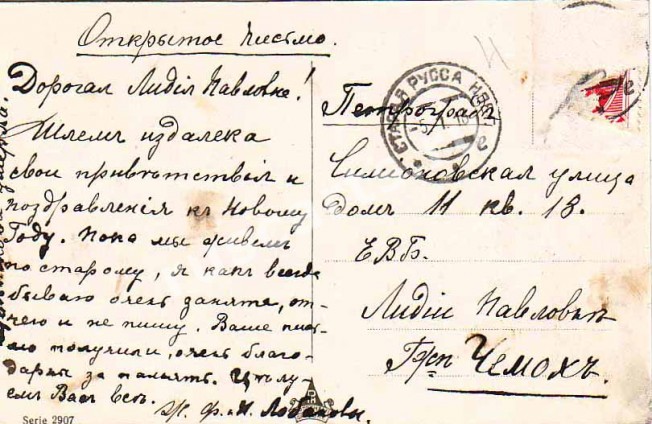 Открытое письмо.
Дорогая Лидія Павловна!
Шлемъ издалека
свои привѣтствія и
поздравленія къ Новому
Году. Пока мы живемъ
по старому, я какъ всегда
бываю очень занята, от-
чего и не пишу. Ваше пись-
мо получили, очень благо-
дарны за память. Цѣлу-
емъ Васъ всѣ.
Serie 2907
СТАРАЯ РУССА НОВГ.
Петроградъ
Симеоновская улица
домъ 11 кв. 13.
ЕВБ.
Лидіи Павловнѣ
Чемохъ.